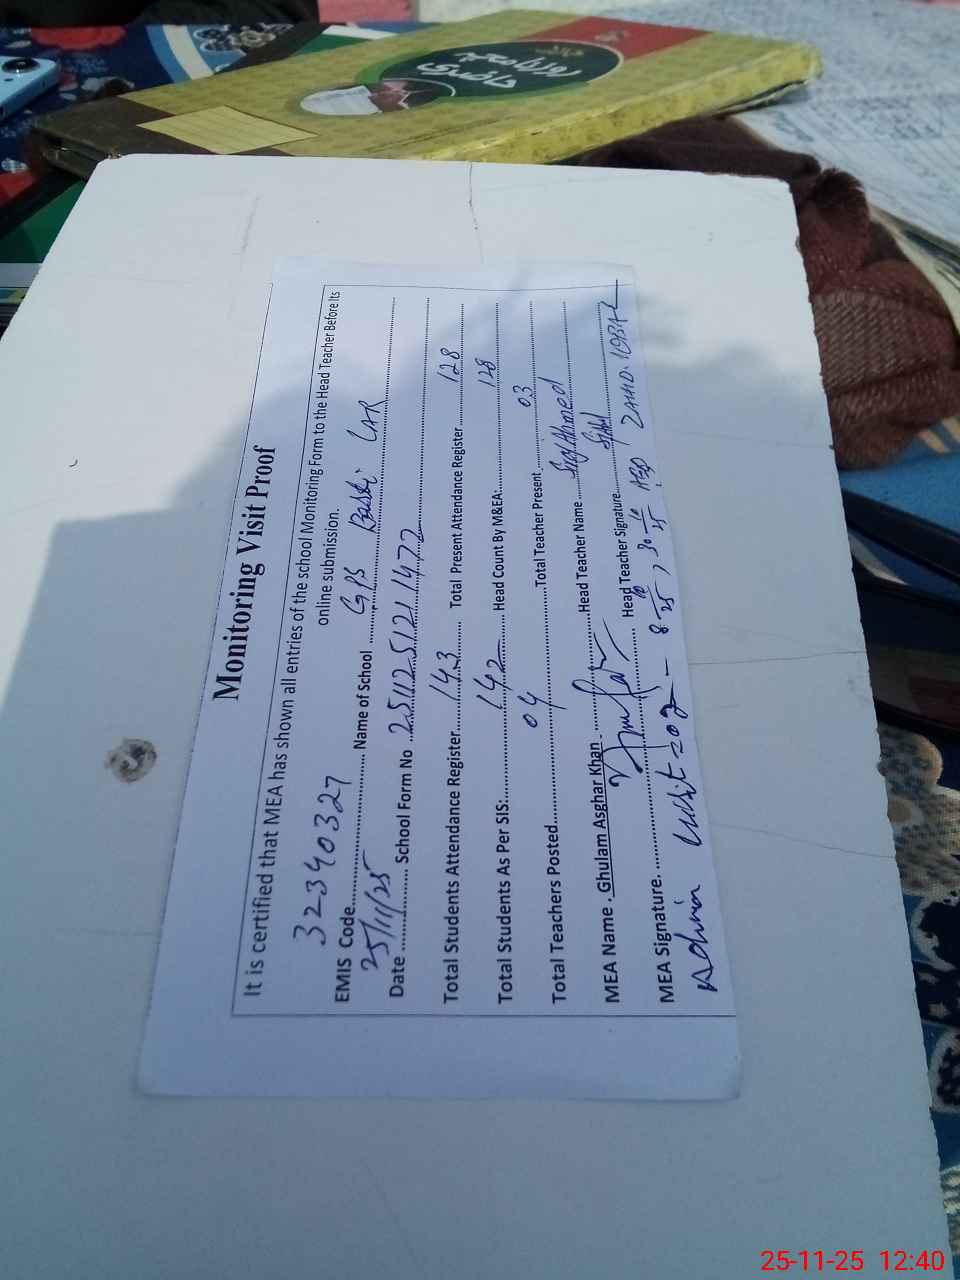 روزنامچہ
حاضری
Monitoring Visit Proof
It is certified that MEA has shown all entries of the school Monitoring Form to the Head Teacher Before Its
online submission.
EMIS Code 32340327 Name of School GPS Basti LAR
Date 25/11/25 School Form No 251125121 1472
Total Students Attendance Register 143 Total Present Attendance Register 128
Total Students As Per SIS: 142 Head Count By M&EA: 128
Total Teachers Posted 04 Total Teacher Present 03
MEA Name . Ghulam Asghar Khan Head Teacher Name Ahmed
MEA Signature. Head Teacher Signature
Admin visit = 02 - 8/10/25, 30/10/25 AEO ZAHID IQBAL
25-11-25 12:40